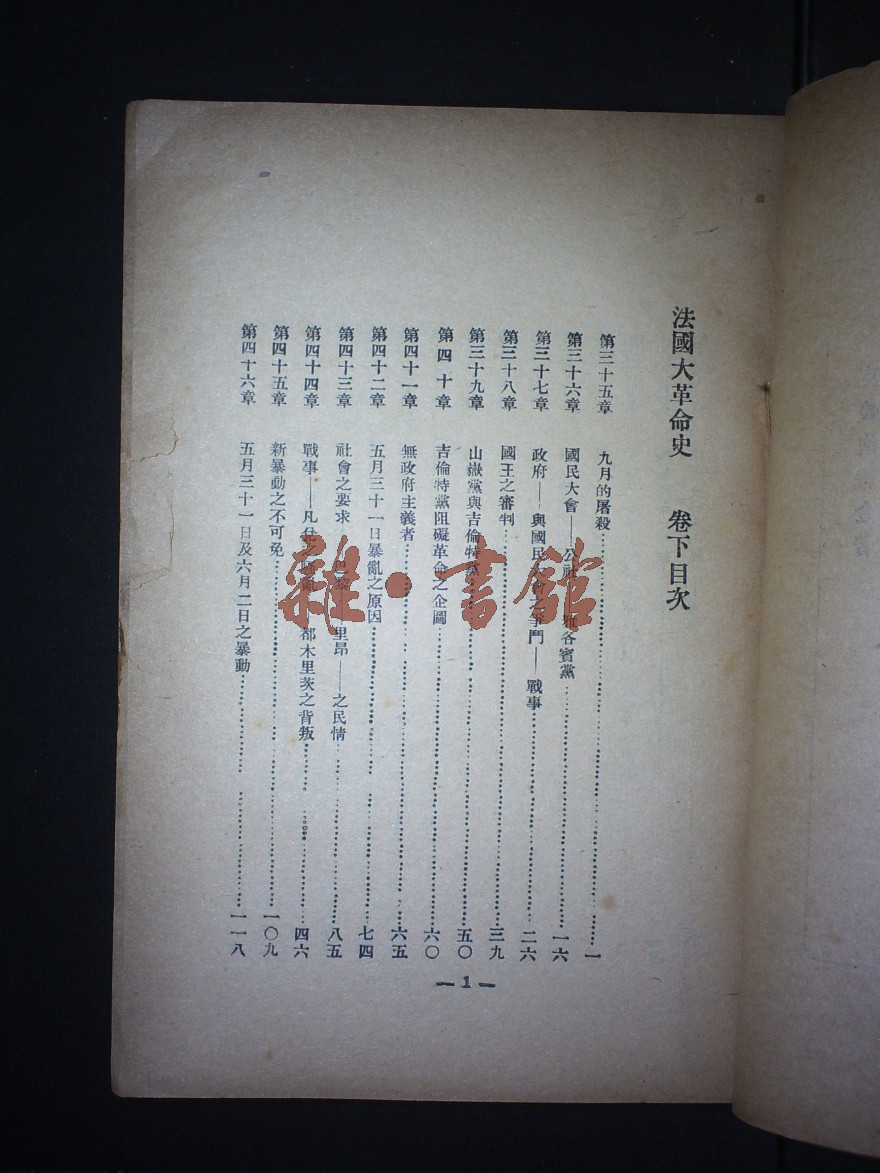 法國大革命史 卷下目次
第三十五章 九月的屠殺……一
第三十六章 國民大會——公社 雅各賓黨……一六
第三十七章 政府——與國民大會之爭鬥——戰事……二六
第三十八章 國王之審判……三九
第三十九章 山嶽黨與吉倫特黨……五〇
第四十章 吉倫特黨阻礙革命之企圖……六〇
第四十一章 無政府主義者……六五
第四十二章 五月三十一日暴亂之原因……七四
第四十三章 社會之要求 巴黎 里昂——之民情……八五
第四十四章 戰事——凡 之 亂 都木里茨之背叛……四六
第四十五章 新暴動之不可免……一〇九
第四十六章 五月三十一日及六月二日之暴動……一一八
—1—
雜·書館